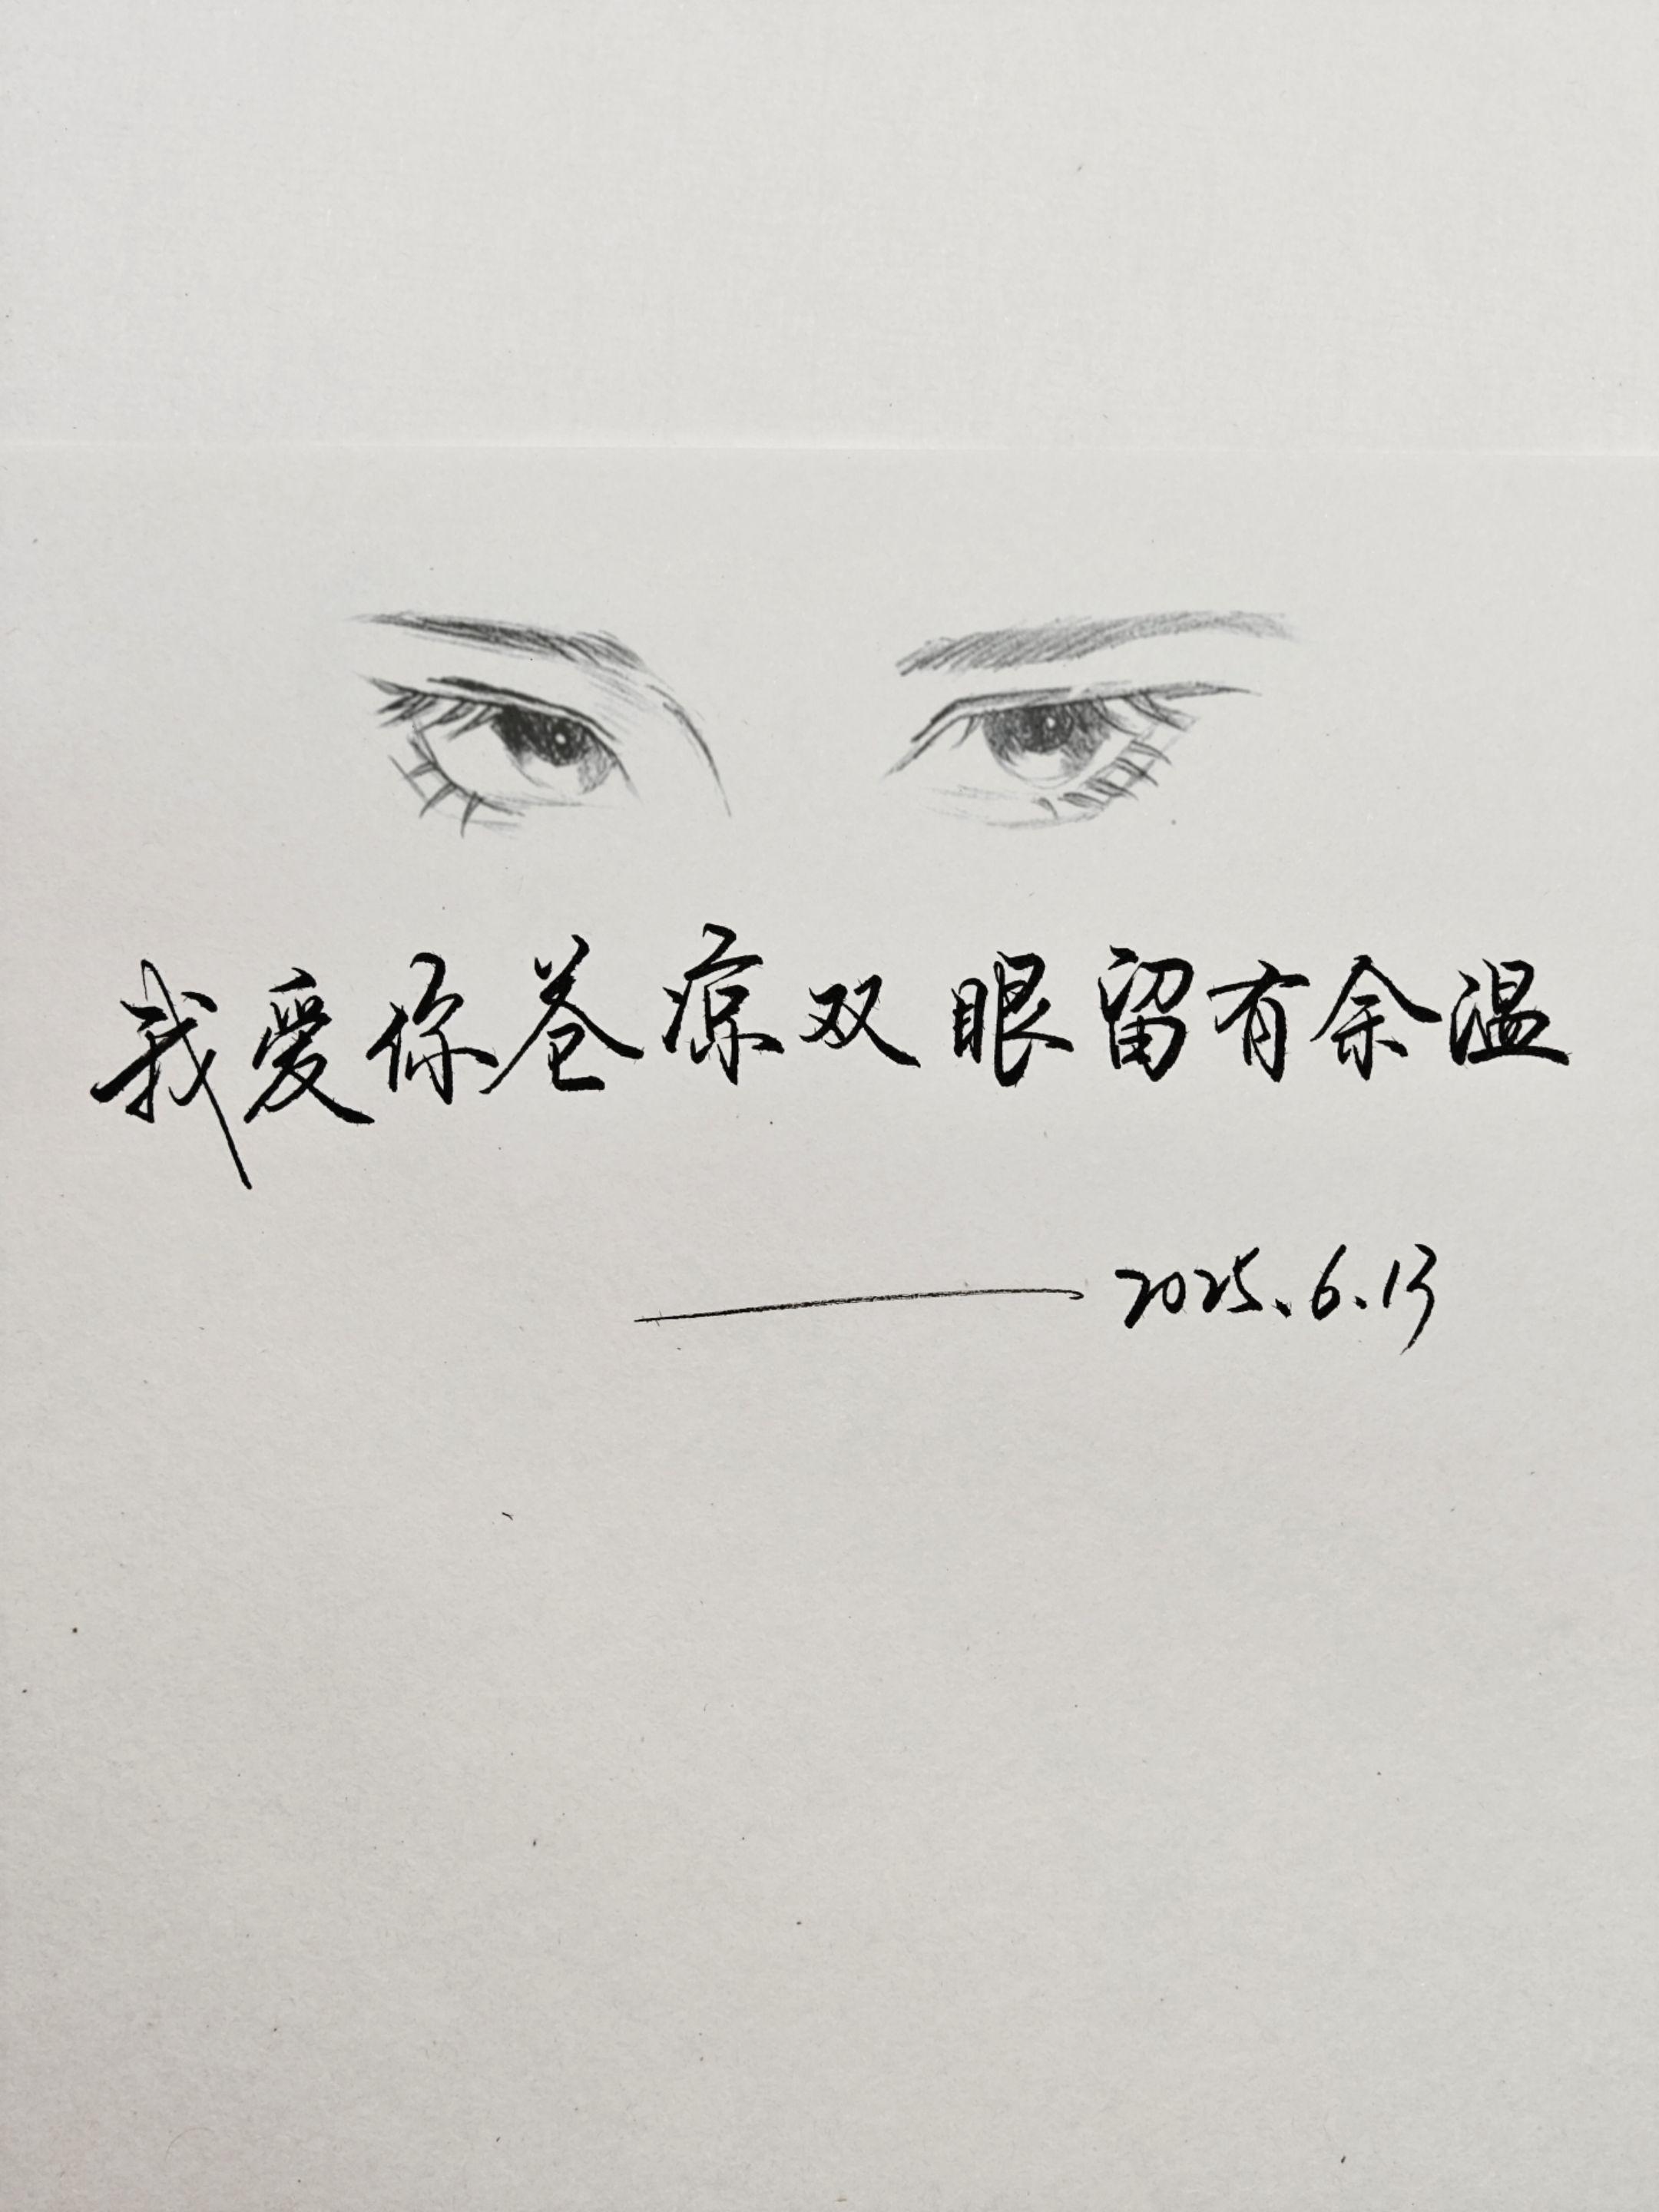 我爱你苍凉双眼留有余温
——2025.6.13